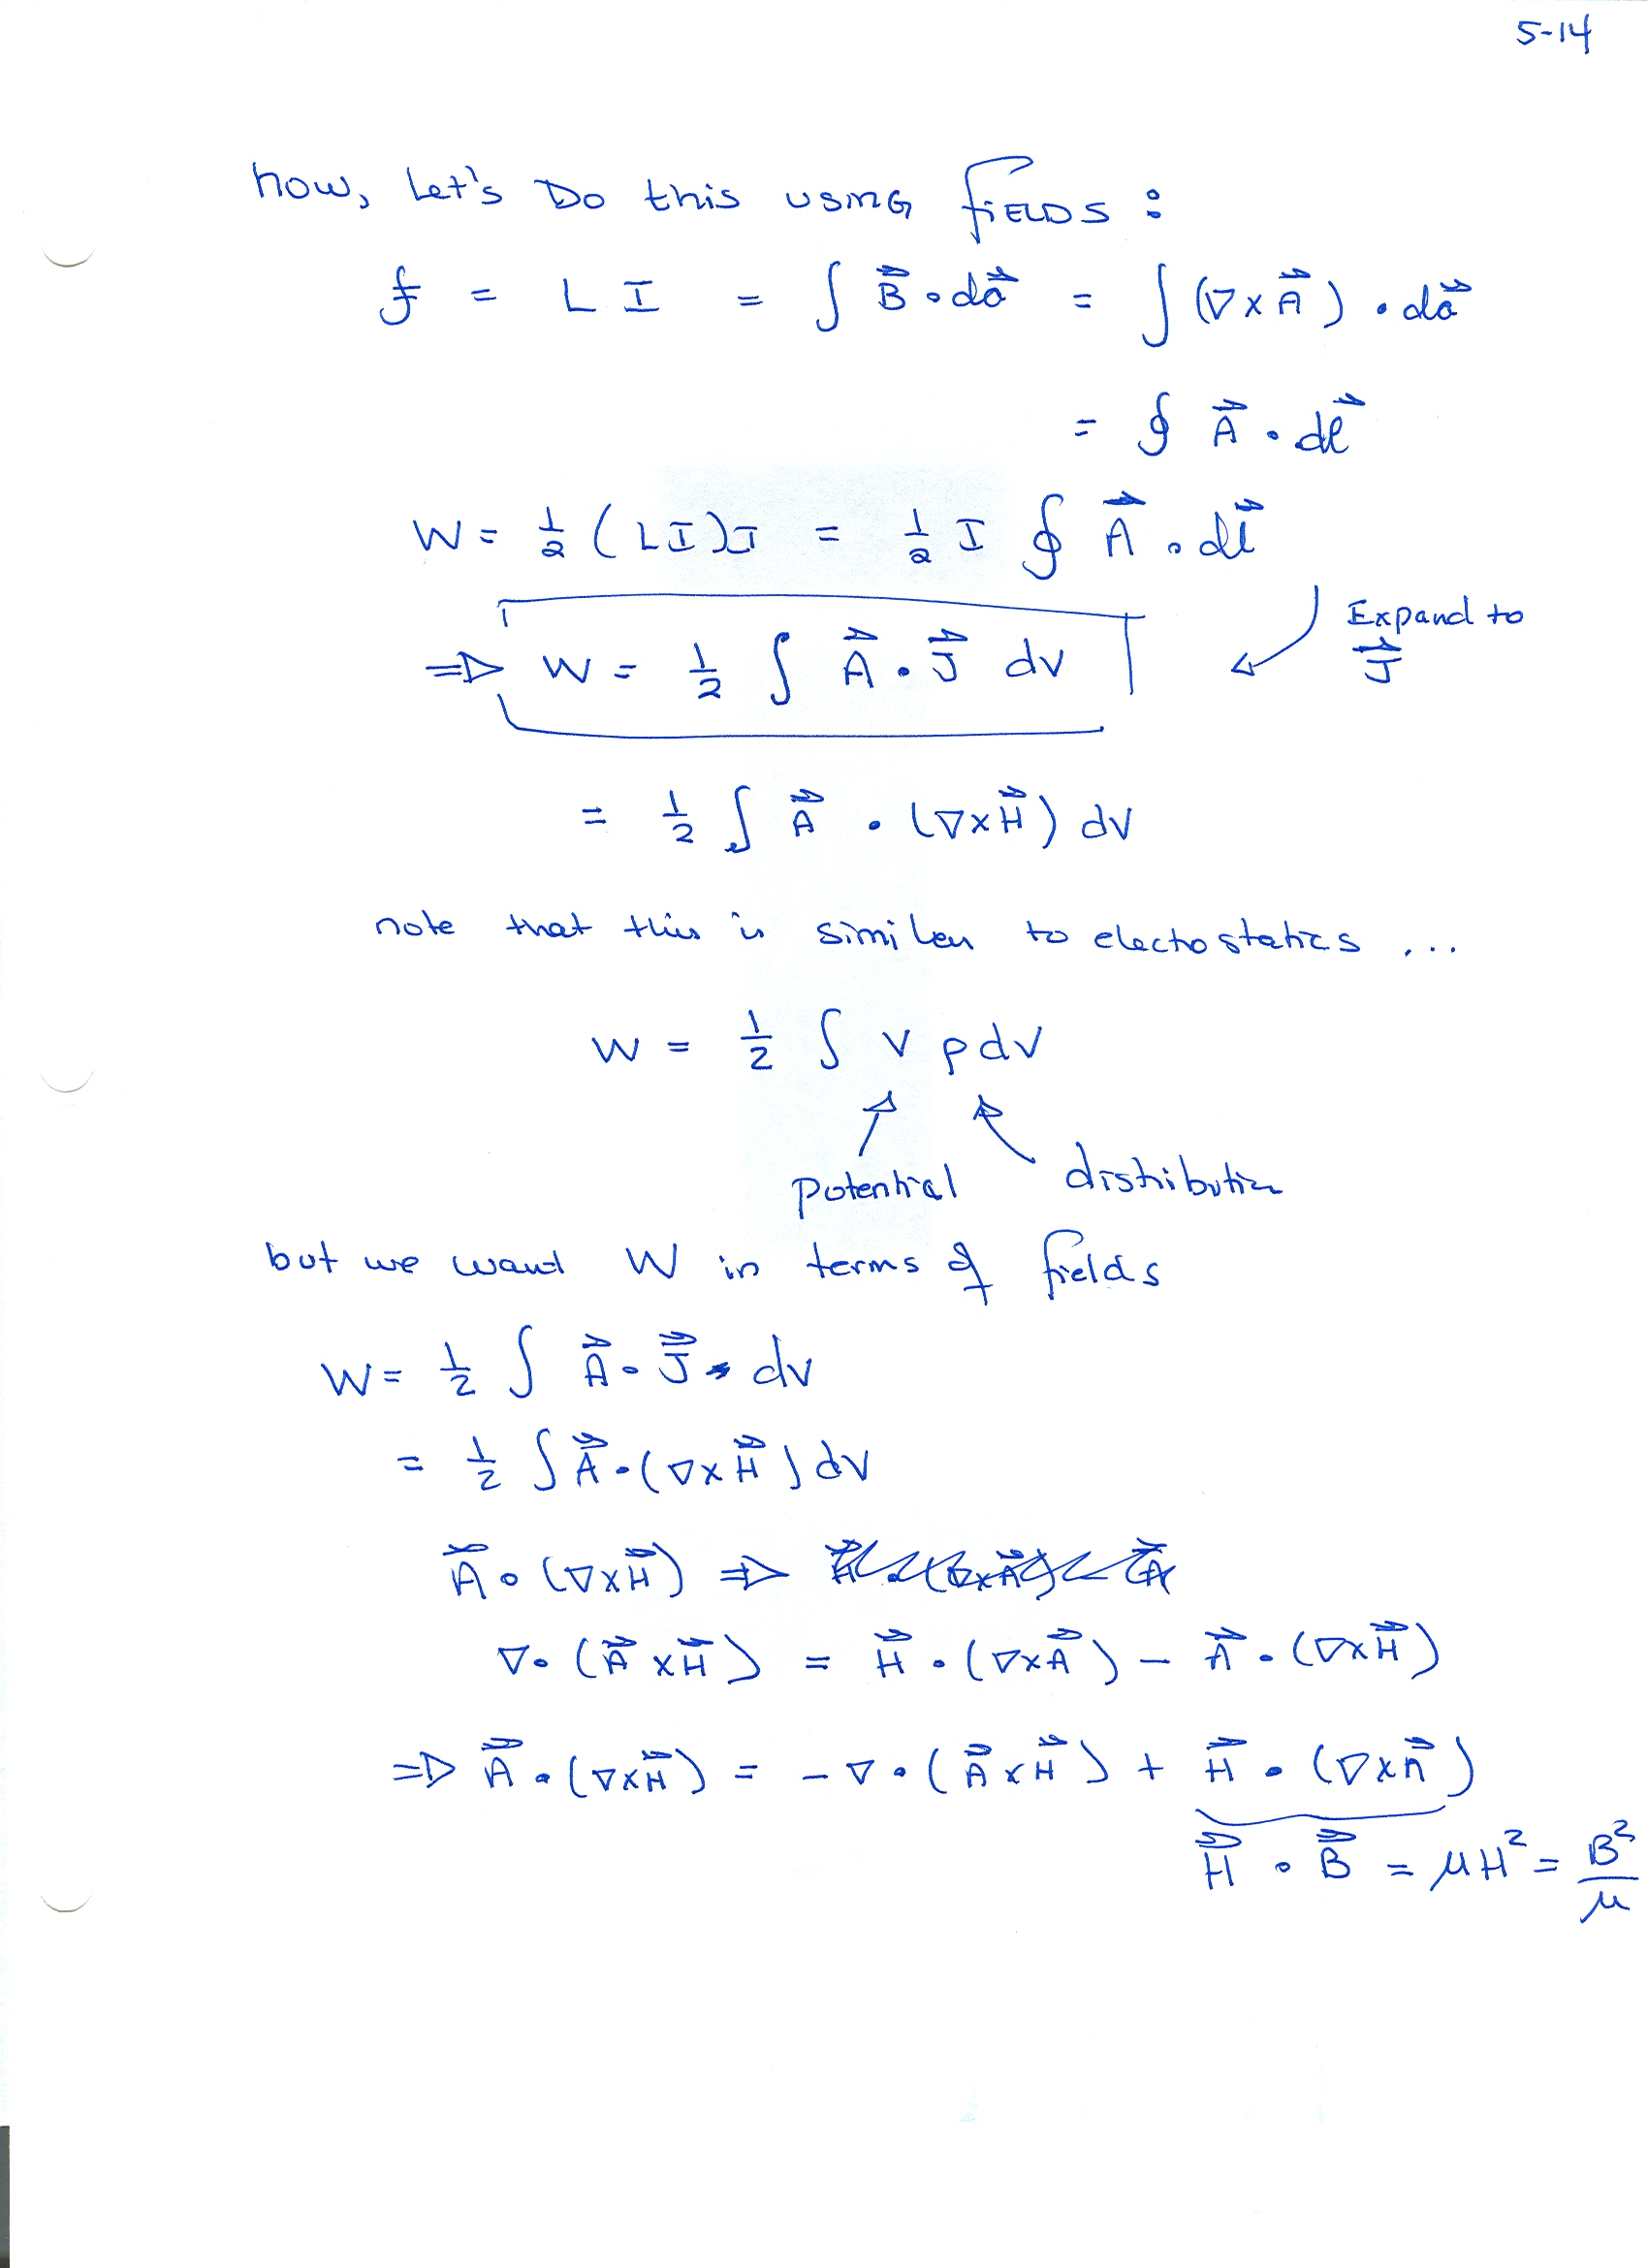 5-14
now, Let's Do this using fields :
f = L I = ∫ B⃗ · da⃗ = ∫ (∇ x A⃗) · da⃗
= ∮ A⃗ · dl⃗
W = 1/2 (LI)I = 1/2 I ∮ A⃗ · dl⃗
Expand to J⃗
⇒ W = 1/2 ∫ A⃗ · J⃗ dv
= 1/2 ∫ A⃗ · (∇xH⃗) dv
note that this is similar to electrostatics ...
W = 1/2 ∫ V ρ dv
potential distribution
but we want W in terms of fields
W = 1/2 ∫ A⃗ · J⃗ dv
= 1/2 ∫ A⃗ · (∇xH⃗) dv
A⃗ · (∇xH⃗) ⇒
∇ · (A⃗ xH⃗) = H⃗ · (∇xA⃗) - A⃗ · (∇xH⃗)
⇒ A⃗ · (∇xH⃗) = - ∇ · (A⃗ x H⃗) + H⃗ · (∇xA⃗)
H⃗ · B⃗ = μH² = B²/μ